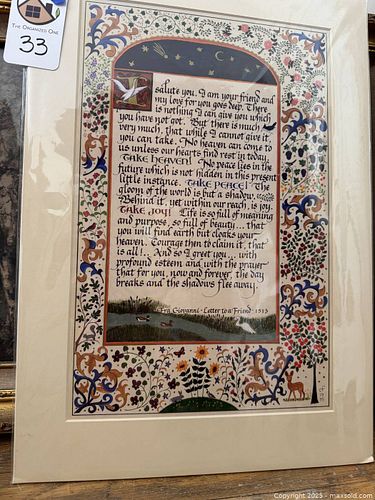 THE ORGANIZED ONE
33
I salute you. I am your friend and
my love for you goes deep. There
is nothing I can give you which
you have not got. But there is much,
very much, that while I cannot give it,
you can take. No heaven can come to
us unless our hearts find rest in today.
TAKE HEAVEN! No peace lies in the
future which is not hidden in this present
little instance. TAKE PEACE! The
gloom of the world is but a shadow.
Behind it, yet within our reach, is joy.
TAKE JOY! Life is so full of meaning
and purpose, so full of beauty... that
you will find earth but cloaks your
heaven. Courage then to claim it, that
is all!.. And so I greet you... with
profound esteem and with the prayer
that for you, now and forever, the day
breaks and the shadows flee away.
Fra Giovanni · Letter to a Friend · 1513
Copyright 2025 - maxsold.com